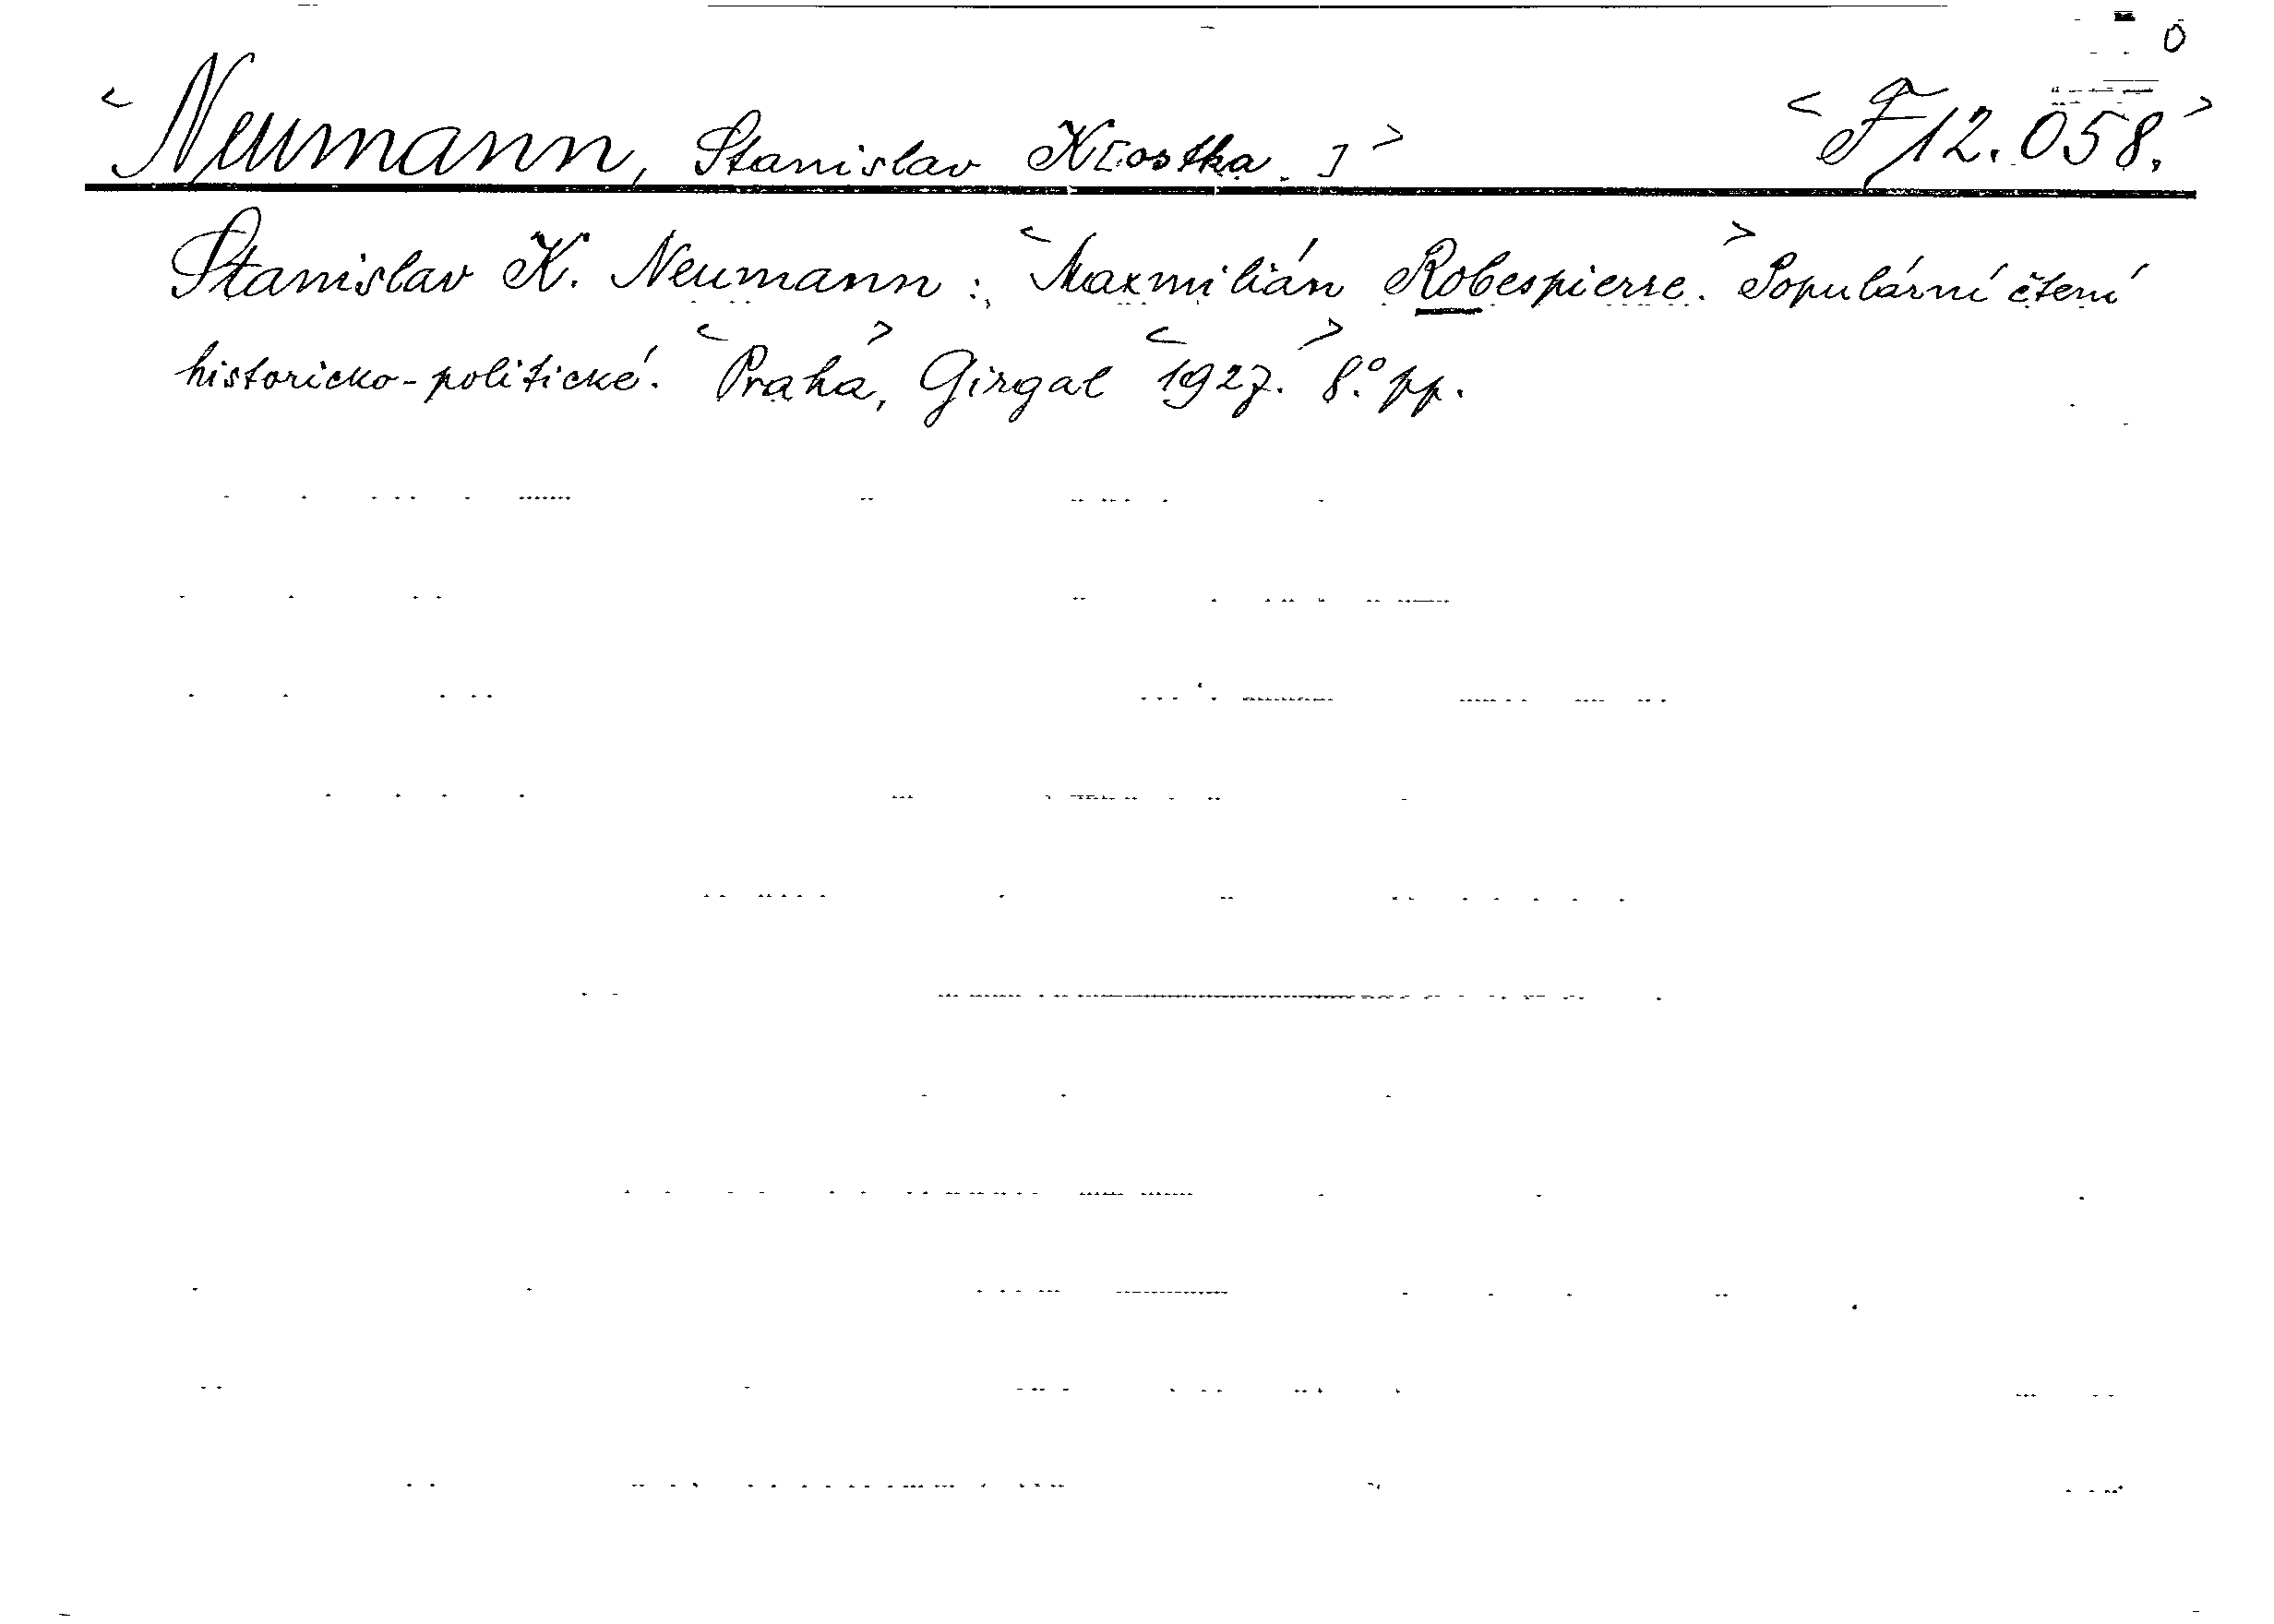 0
<Neumann, Stanislav K[ostka.]> <F 12.058.>
Stanislav K. Neumann: <Maxmilián Robespierre.> Populární čtení
historicko-politické. <Praha>, Girgal <1927.> 8.° pp.